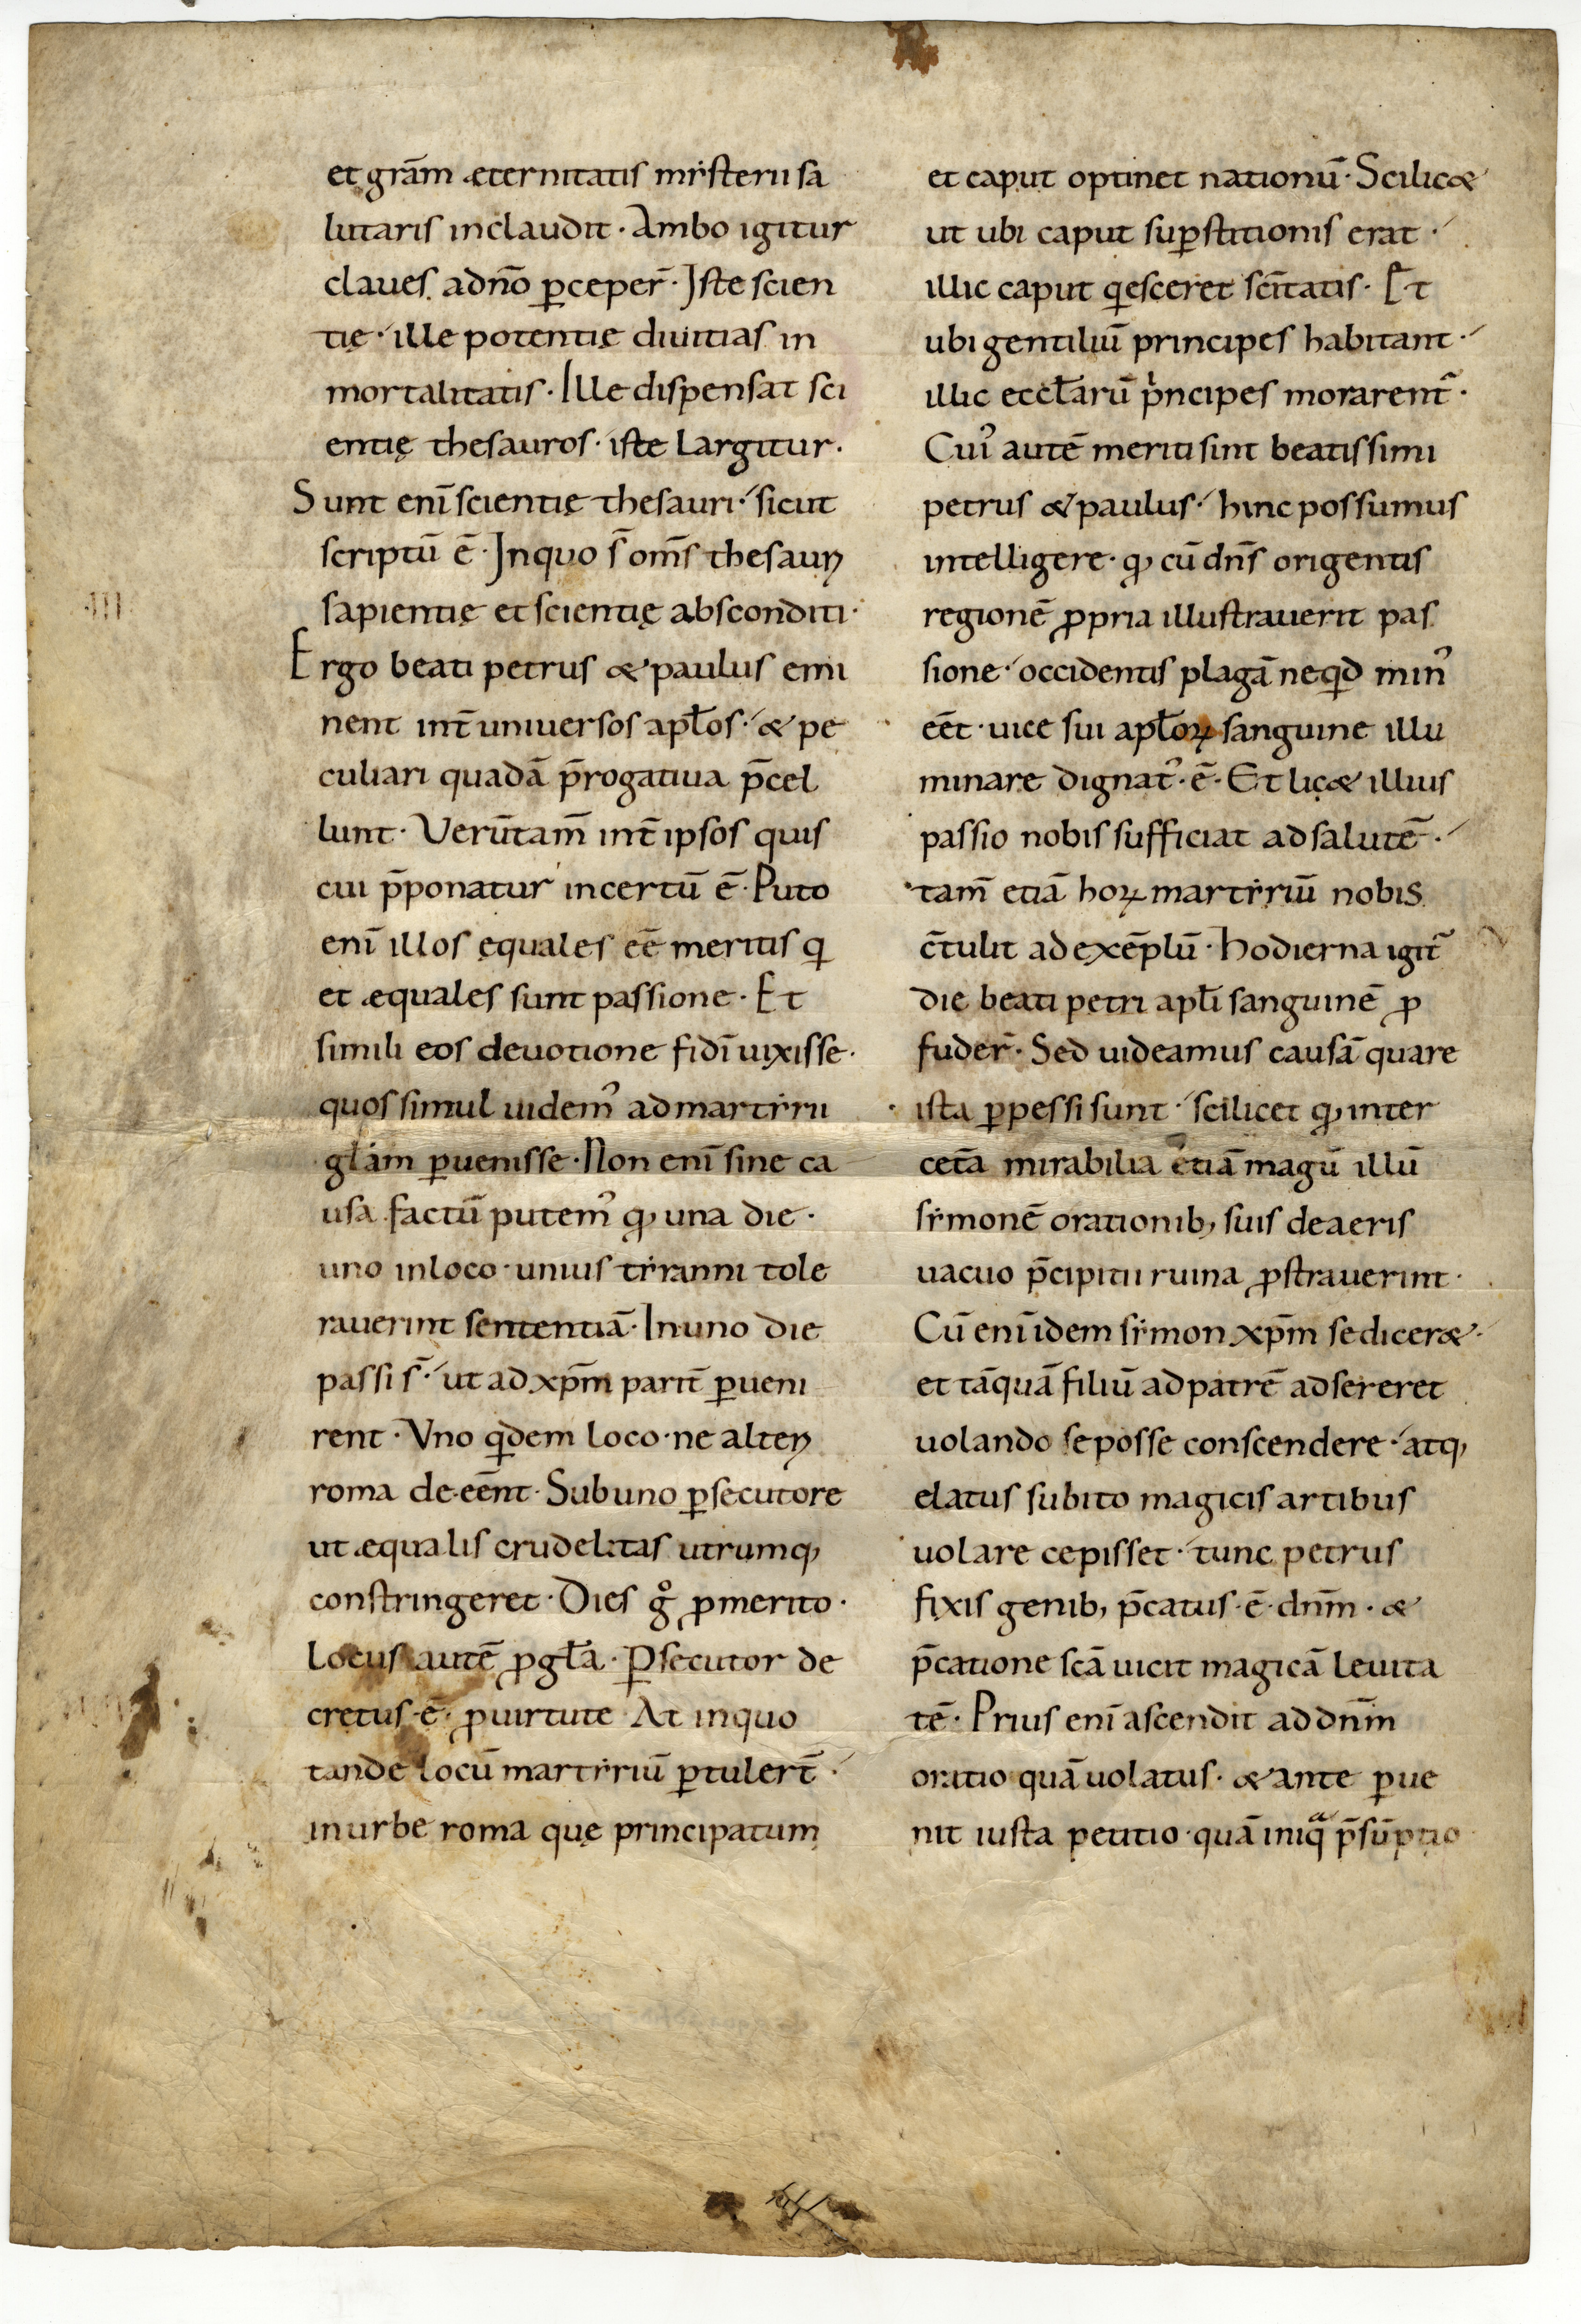 ·III·
et grām æternitatis mẏsterii sa
lutaris inclaudit· Ambo igitur
claues adnō ꝑceper̄· Iste scien
tię· ille potentię diuitias in
mortalitatis· Ille dispensat sci
entię thesauros· iste largitur·
Sunt enī scientię thesauri· sicut
scriptū ē· Inquo s̄ om̄s thesauꝝ
sapientię et scientię absconditi·
Ergo beati petrus & paulus emi
nent int̄ uniuersos apłos· & pe
culiari quadā p̄rogatiua p̄cel
lunt· Verūtam̄ int̄ ipsos quis
cui p̄ponatur incertū ē· Puto
enī illos ęquales eē meritis ꝗ
et æquales sunt passione· Et
simili eos deuotione fidī uixisse·
quos simul uidem᾽ ad martẏrii
głam ꝑuenisse· Non enī sine ca
usa factū putem᾽ ꝙ una die·
uno inloco· unius tẏranni tole
rauerint sententiā· In uno die
passi s̄· ut ad xp̄m parit̄ ꝑueni
rent· Vno ꝗdem loco· ne alteꝝ
roma de·eēnt· Sub uno ꝑsecutore
ut æqualis crudelitas utrumq;
constringeret· Dies g̊ ꝓ merito·
Locus autē ꝓ gła· Ꝑsecutor de
cretus·ē· ꝓ uirtute· At inquo
tande locū martẏriū ꝑtulert̄·
in urbe roma quę principatum
et caput optinet nationū· Scilic&
ut ubi caput suꝑstitionis erat·
illic caput ꝗesceret sc̄itatis· Et
ubi gentiliū principes habitant·
illic eccłarū pͥncipes morarent̄·
Cui᾽ autē meriti sint beatissimi
petrus & paulus· hinc possumus
intelligere· ꝙ cū dn̄s origentis
regionē ꝓpria illustrauerit pas
sione· occidentis plagā neꝗd min᾽
eēt· uice sui apłoꝝ sanguine illu
minare dignat᾽·ē· Et lic& illius
passio nobis sufficiat ad salutē·
tam̄ etiā hoꝝ martẏriū nobis
c̄tulit ad exēplū· Hodierna igit̄
die beati petri apłi sanguinē ꝓ
fuder̄· Sed uideamus causā quare
ista ꝑpessi sunt· scilicet ꝙ inter
cet̄a mirabilia etiā magū illū
sẏmonē orationib; suis de aeris
uacuo p̄cipitii ruina ꝓstrauerint·
Cū enī idem sẏmon xp̄m se dicer&·
et tāquā filiū ad patrē adsereret
uolando se posse conscendere· atq;
elatus subito magicis artibus
uolare cepisset· tunc petrus
fixis genib; p̄catus·ē· dn̄m· &
p̄catione scā uicit magicā leuita
tē· Prius enī ascendit ad dn̄m
oratio quā uolatus· & ante ꝑue
nit iusta petitio· quā iniqͣ p̄sūptio